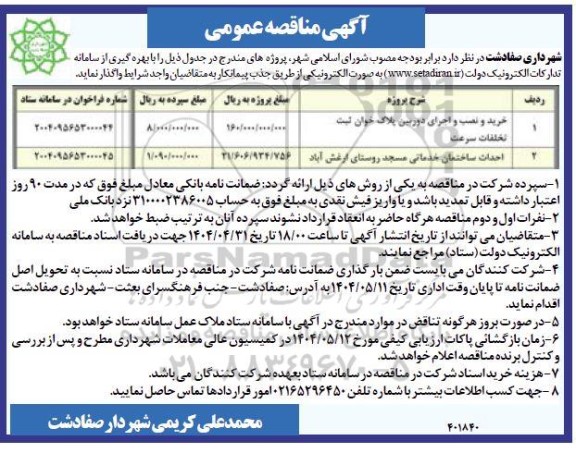 آگهی مناقصه عمومی
شهرداری صفادشت در نظر دارد برابر بودجه مصوب شورای اسلامی شهر، پروژه های مندرج در جدول ذیل را با بهره گیری از سامانه
تدارکات الکترونیک دولت (www.setadiran.ir) به صورت الکترونیکی از طریق جذب پیمانکار به متقاضیان واجد شرایط واگذار نماید.
ردیف شرح پروژه مبلغ پروژه به ریال مبلغ سپرده به ریال شماره فراخوان در سامانه ستاد
۱ خرید و نصب و اجرای دوربین پلاک خوان ثبت تخلفات سرعت ۱۶۰/۰۰۰/۰۰۰/۰۰۰ ۸/۰۰۰/۰۰۰/۰۰۰ ۲۰۰۴۰۹۵۶۵۳۰۰۰۰۴۴
۲ احداث ساختمان خدماتی مسجد روستای ارغش آباد ۲۱/۶۰۶/۹۳۴/۷۵۶ ۱/۰۹۰/۰۰۰/۰۰۰ ۲۰۰۴۰۹۵۶۵۳۰۰۰۰۴۵
۱-سپرده شرکت در مناقصه به یکی از روش های ذیل ارائه گردد: ضمانت نامه بانکی معادل مبلغ فوق که در مدت ۹۰ روز
اعتبار داشته و قابل تمدید باشد و یا واریز فیش نقدی به مبلغ فوق به حساب ۳۱۰۰۰۰۲۳۸۶۰۰۵ نزد بانک ملی
۲-نفرات اول و دوم مناقصه هر گاه حاضر به انعقاد قرارداد نشوند سپرده آنان به ترتیب ضبط خواهد شد.
۳-متقاضیان می توانند از تاریخ انتشار آگهی تا ساعت ۱۸/۰۰ تاریخ ۱۴۰۴/۰۴/۳۱ جهت دریافت اسناد مناقصه به سامانه
الکترونیک دولت (ستاد) مراجع نمایند.
۴-شرکت کنندگان می بایست ضمن بار گذاری ضمانت نامه شرکت در مناقصه در سامانه ستاد نسبت به تحویل اصل
ضمانت نامه تا پایان وقت اداری تاریخ ۱۴۰۴/۰۵/۱۱ به آدرس: صفادشت-جنب فرهنگسرای بعثت-شهرداری صفادشت
اقدام نماید.
۵-در صورت بروز هرگونه تناقض در موارد مندرج در آگهی با سامانه ستاد ملاک عمل سامانه ستاد خواهد بود.
۶-زمان بازگشائی پاکات ارزیابی کیفی مورخ ۱۴۰۴/۰۵/۱۲ در کمیسیون عالی معاملات شهرداری مطرح و پس از بررسی
و کنترل برنده مناقصه اعلام خواهد شد.
۷-هزینه خرید اسناد شرکت در مناقصه در سامانه ستاد بعهده شرکت کنندگان می باشد.
۸-جهت کسب اطلاعات بیشتر با شماره تلفن ۰۲۱۶۵۲۹۶۴۵۰ امور قراردادها تماس حاصل نمایید.
محمدعلی کریمی شهردار صفادشت
۴۰۱۸۴۰